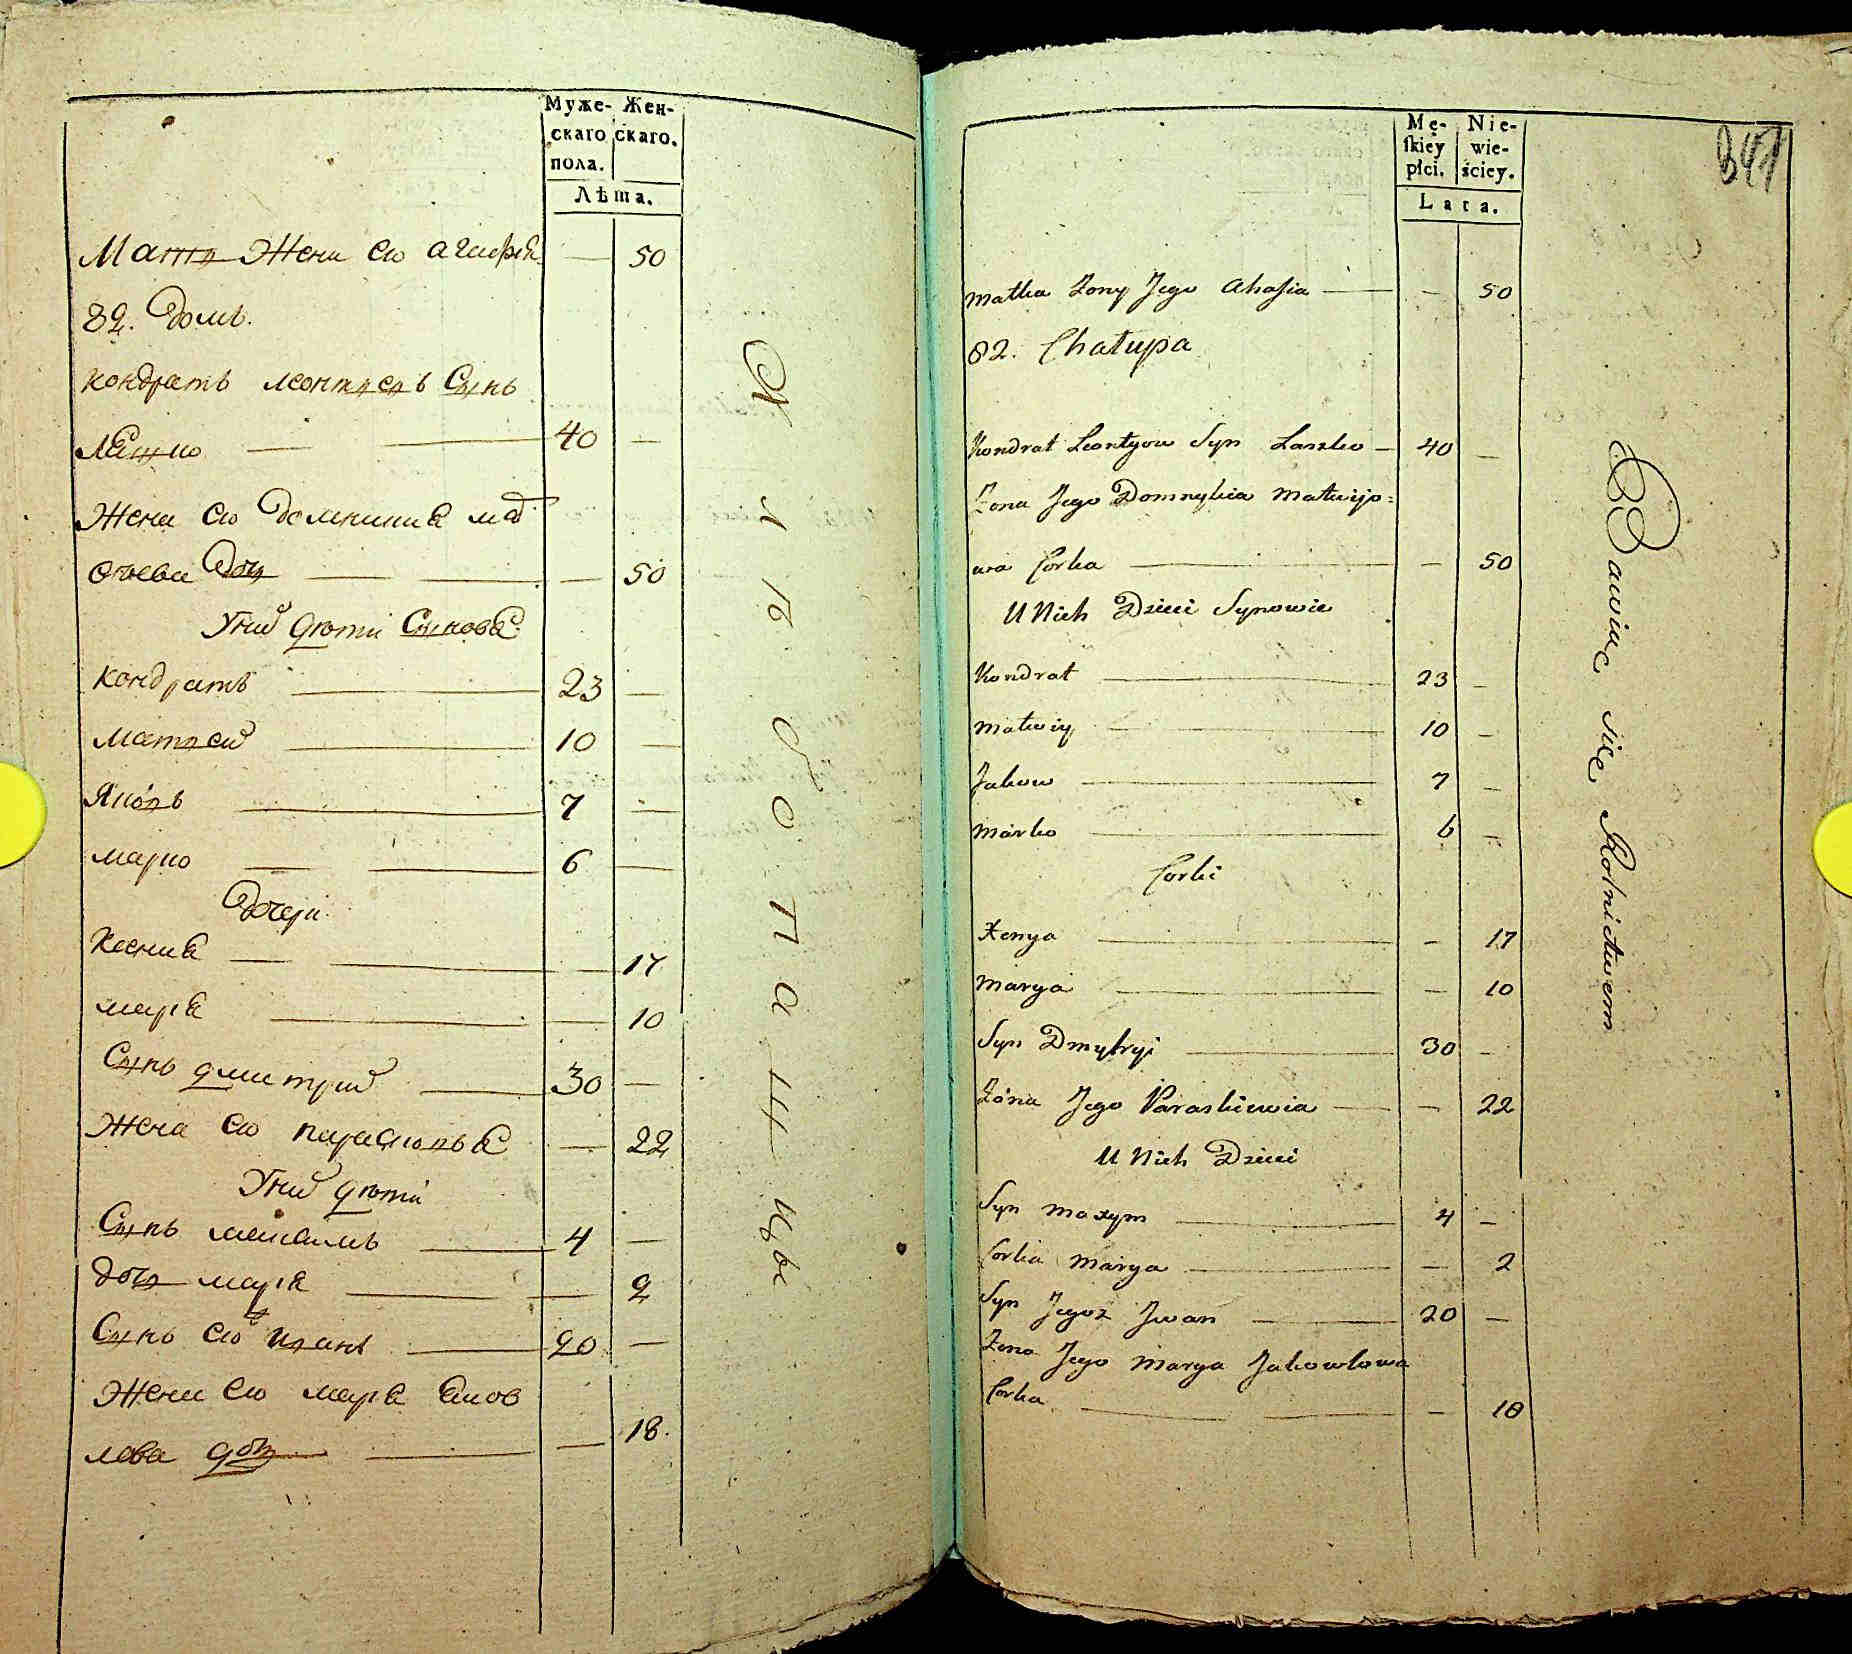 Муже- Жен-
скаго скаго.
пола.
Лѣта.
Мать Жени ею агафия — 50
82. домъ.
кондратъ леонтьевъ Сынъ
Ляшко — 40 —
Жена ево домникия мат
веева дочь — 50
У них дѣти Сыновя
кондратъ 23 —
матвей 10 —
Яковъ 7 —
марко 6 —
дочери
Ксения — 17
мария — 10
Сынъ дмитрий 30 —
Жена ево парасковья — 22
У них дѣти
Сынъ максимъ 4 —
дочь мария — 2
Сынъ ево иванъ 20 —
Жена ево мария яков
лева дочь — 18.
Хлѣбопашцы
347
Mę- Nie-
skiey wie-
płci. ściey.
Lata.
Matka Żony Jego Ahafia — — 50
82. Chałupa
Kondrat Leontyow Syn Laszko — 40 —
Żona Jego Domnykia Matwijo=
wa Corka — — 50
U Nich Dzieci Synowie
Kondrat 23 —
Matwiy 10 —
Jakow 7 —
Marko 6 —
Corki
Xenya — 17
Marya — 10
Syn Dmytryi 30 —
Żóna Jego Paraskiewia — — 22
U Nich Dzieci
Syn Maxym 4 —
Corka Marya — 2
Syn Jegoż Jwan 20 —
Żona Jego Marya Jakowlowa
Corka — — 18
Bawiąc się Rolnictwem